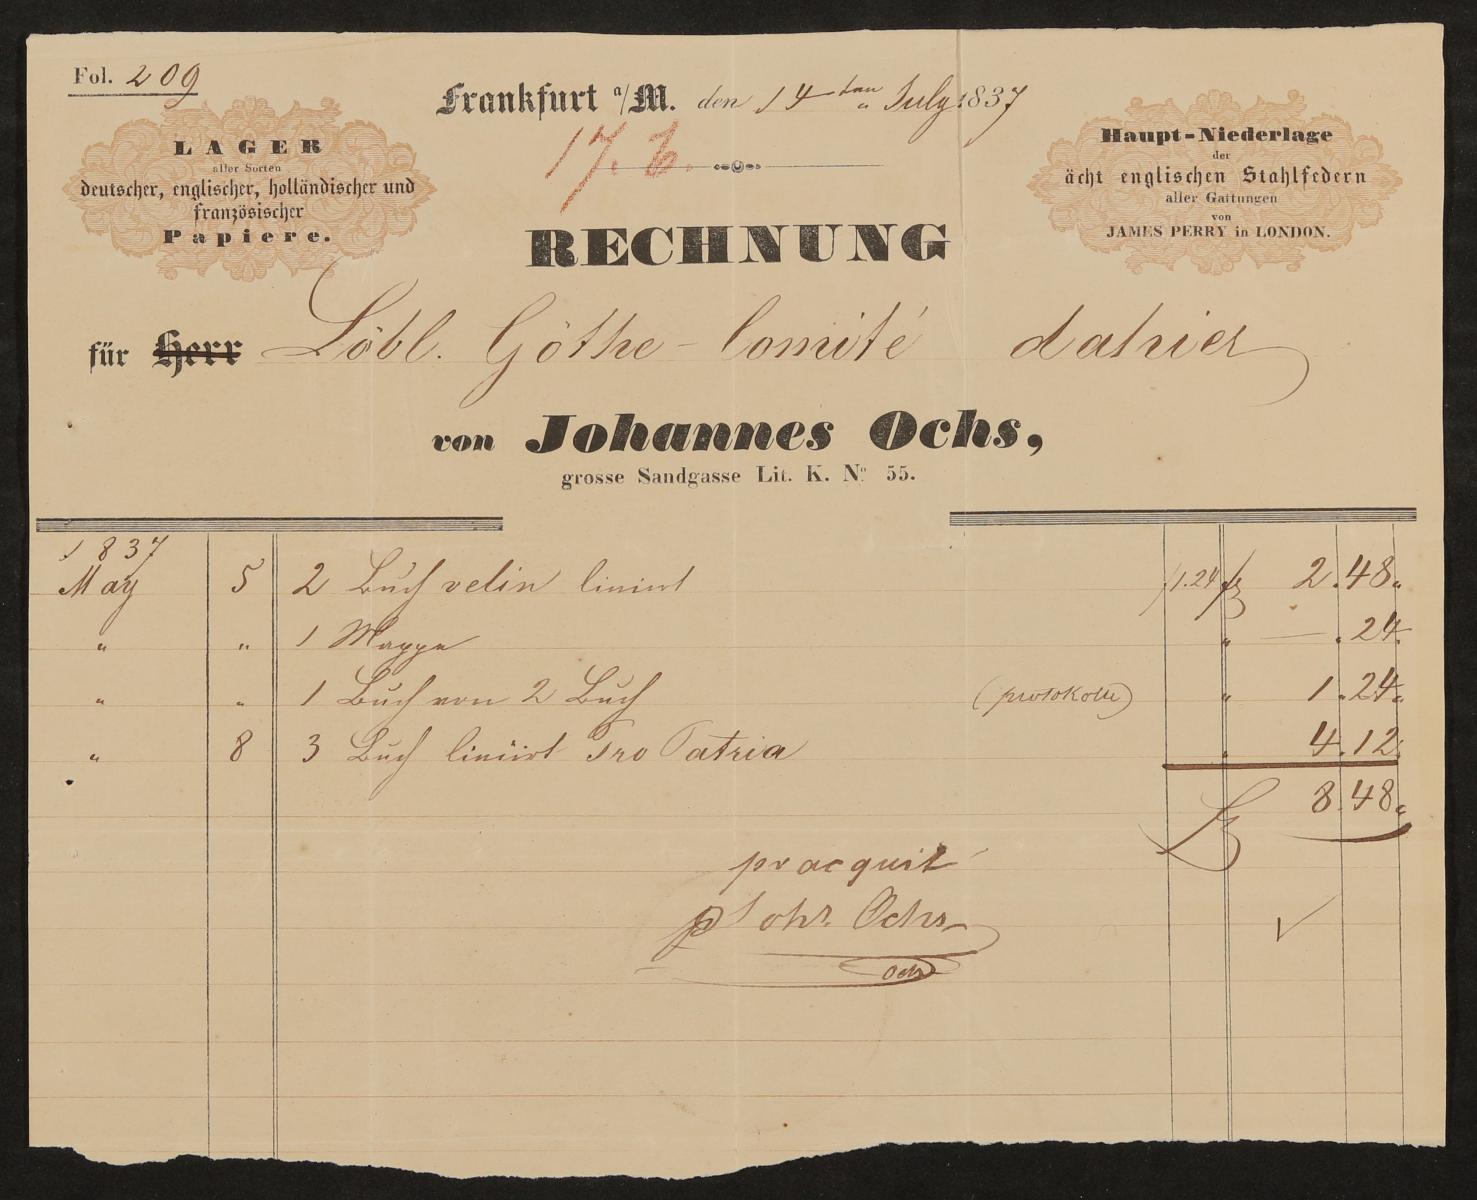 Fol. 209
Frankfurt a/M. den 14ten July 1837
17. b.
LAGER
aller Sorten
deutscher, englischer, holländischer und
französischer
Papiere.
Haupt-Niederlage
der
ächt englischen Stahlfedern
aller Gattungen
von
JAMES PERRY in LONDON.
RECHNUNG
für Herr Löbl. Göthe-Comité dahier
von Johannes Ochs,
grosse Sandgasse Lit. K. No. 55.
1837
May 5 2 Buch velin liniirt 1.24 fl 2.48.
" " 1 Mappe " — . 24.
" " 1 Buch von 2 Buch (protokolle) " 1.24.
" 8 3 Buch liniirt Pro Patria " 4.12.
fl 8.48.
pr acquit
p Johs. Ochs
Ochs